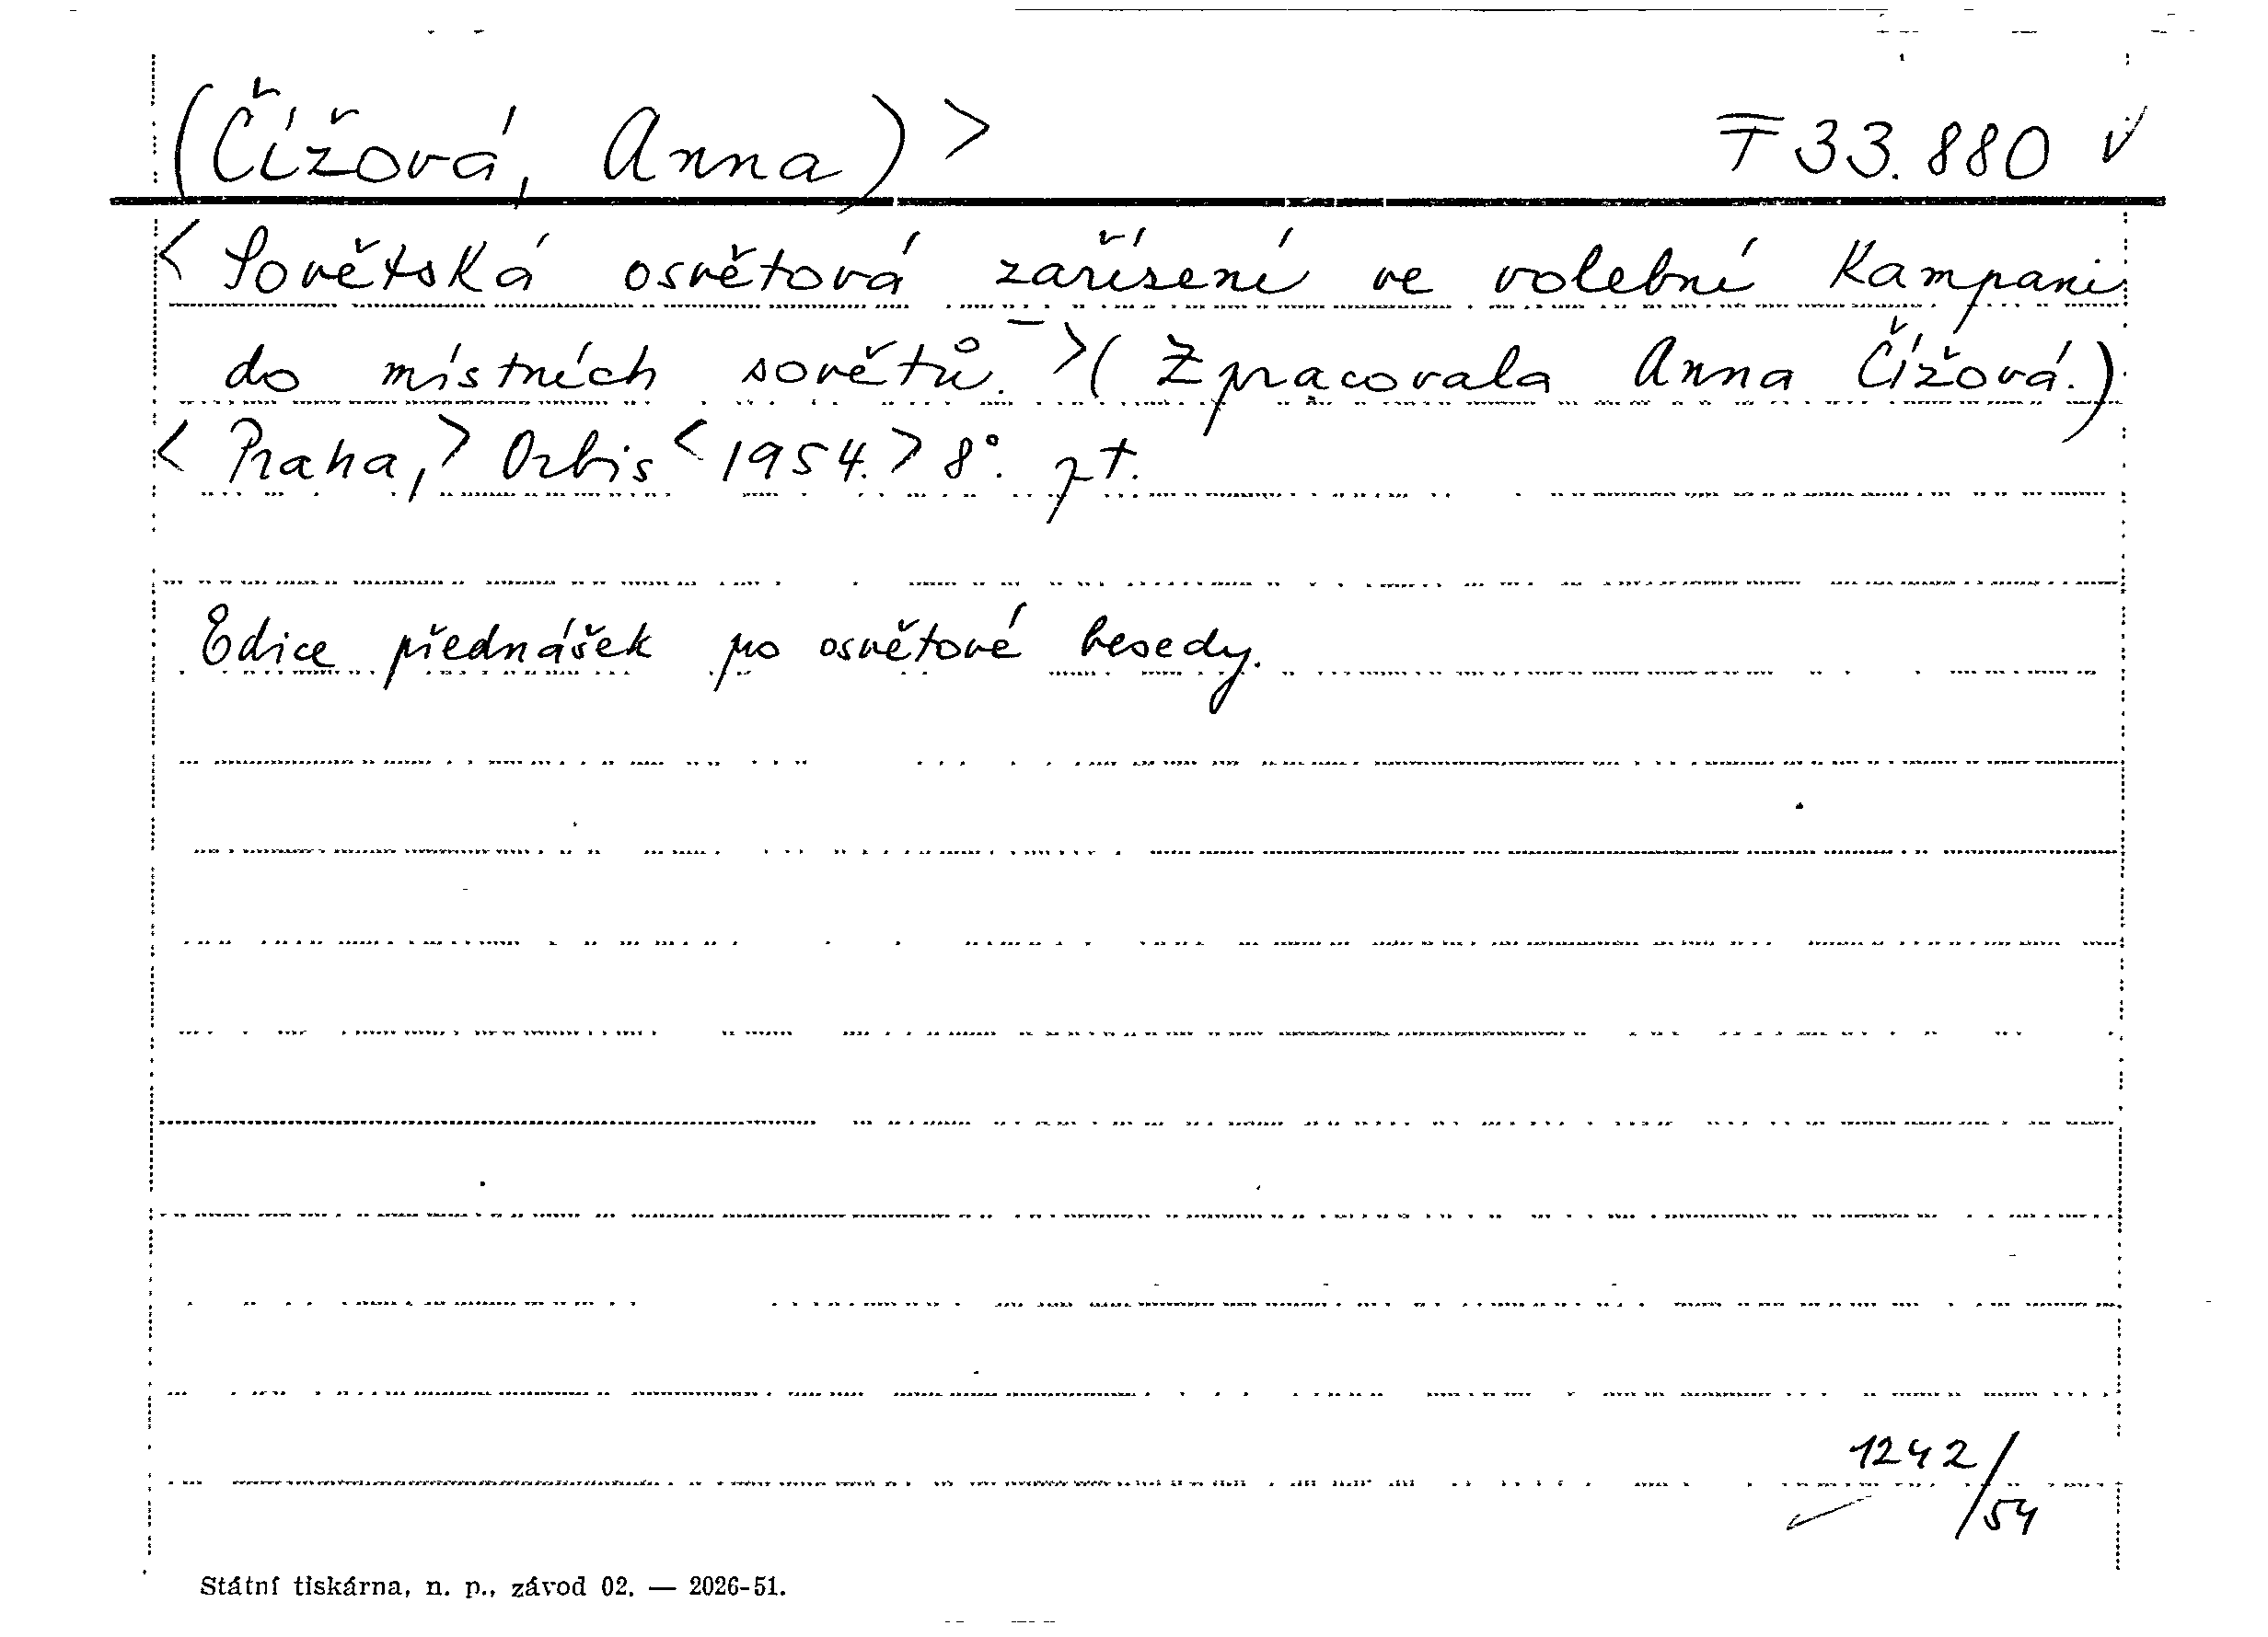 (Čížová, Anna)> T 33.880 v
<Sovětská osvětová zařízení ve volební kampani
do místních sovětů. ->(Zpracovala Anna Čížová.)
<Praha,> Orbis <1954.> 8°.
Edice přednášek pro osvětové besedy.
1242/
/54
Státní tiskárna, n. p., závod 02. — 2026-51.